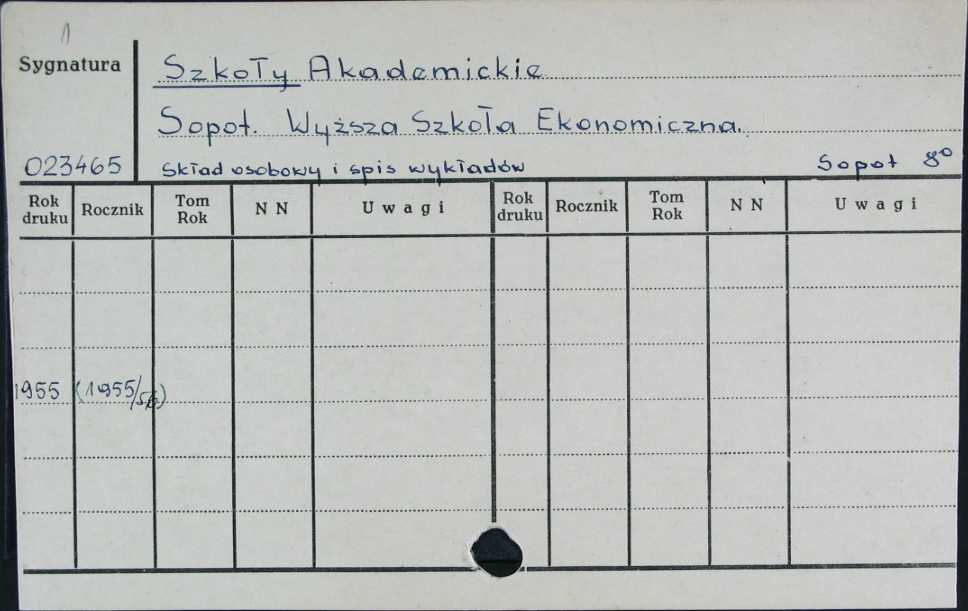 1
Sygnatura
Szkoły Akademickie
Sopot. Wyższa Szkoła Ekonomiczna.
023465
Skład osobowy i spis wykładów Sopot 8°
Rok druku Rocznik Tom Rok N N Uwagi Rok druku Rocznik Tom Rok N N Uwagi
1955 (1955/56)